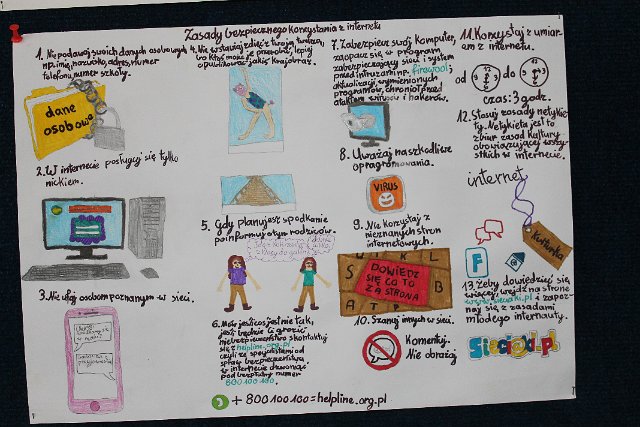 Zasady bezpiecznego korzystania z internetu
1. Nie podawaj swoich danych osobowych
np. imię, nazwisko, adres, numer
telefonu, numer szkoły.
dane
osobowe
2. W internecie posługuj się tylko
nickiem.
3. Nie ufaj osobom poznanym w sieci.
4. Nie wstawiaj zdjęć z twoją twarzą,
bo ktoś może je przerobić, lepiej
opublikować jakiś krajobraz.
5. Gdy planujesz spotkanie
poinformuj o tym rodziców.
6. Mów jeśli coś jest nie tak,
jeśli będzie Ci grozić
niebezpieczeństwo skontaktuj
się z helpline.org.pl
czyli ze specjalistami od
spraw bezpieczeństwa
w internecie dzwoniąc
pod bezpłatny numer
800 100 100.
7. Zabezpiecz swój komputer,
zaopatrz się w program
zabezpieczający sieci i system
przed intruzami np. firewall;
aktualizacji wymienionych
programów, chronić przed
atakiem wirusów i hakerów.
8. Uważaj na szkodliwe
oprogramowania.
VIRUS
9. Nie korzystaj z
nieznanych stron
internetowych.
DOWIEDZ
SIĘ CO TO
ZA STRONA
10. Szanuj innych w sieci.
Komentuj.
Nie obrażaj
11. Korzystaj z umiar-
em z internetu.
od do
czas: 3 godz.
12. Stosuj zasady netykie-
ty. Netykieta jest to
zbiór zasad kultury
obowiązującej wszy-
stkich w internecie.
internet
Kulturka
F
13. Żeby dowiedzieć się
więcej, wejdź na stronę
www.sieciaki.pl i zapoz-
naj się z zasadami
młodego internauty.
Sieciaki.pl
+ 800 100 100 = helpline.org.pl